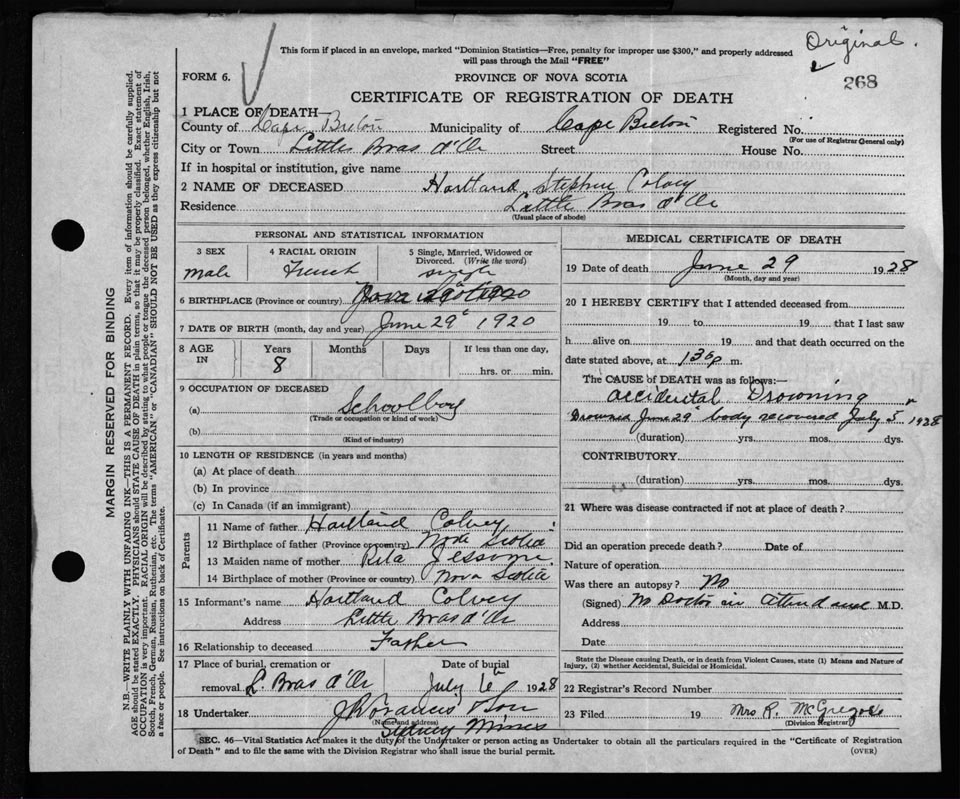 Original.
This form if placed in an envelope, marked "Dominion Statistics—Free, penalty for improper use $300," and properly addressed
will pass through the Mail "FREE"
268
FORM 6.
PROVINCE OF NOVA SCOTIA
CERTIFICATE OF REGISTRATION OF DEATH
1 PLACE OF DEATH
County of Cape Breton Municipality of Cape Breton Registered No.
(For use of Registrar General only)
City or Town Little Bras d'Or Street House No.
If in hospital or institution, give name
2 NAME OF DECEASED Hartland Stephen Colvey
Residence Little Bras d'Or
(Usual place of abode)
PERSONAL AND STATISTICAL INFORMATION
3 SEX 4 RACIAL ORIGIN 5 Single, Married, Widowed or Divorced. (Write the word)
Male French single
6 BIRTHPLACE (Province or country)
7 DATE OF BIRTH (month, day and year) June 29" 1920
8 AGE IN Years Months Days If less than one day,
8 hrs. or min.
9 OCCUPATION OF DECEASED
(a) Schoolboy
(Trade or occupation or kind of work)
(b)
(Kind of industry)
10 LENGTH OF RESIDENCE (in years and months)
(a) At place of death
(b) In province
(c) In Canada (if an immigrant)
Parents
11 Name of father Hartland Colvey
12 Birthplace of father (Province or country) Nova Scotia
13 Maiden name of mother Rita Jessome
14 Birthplace of mother (Province or country) Nova Scotia
15 Informant's name Hartland Colvey
Address Little Bras d'Or
16 Relationship to deceased Father
17 Place of burial, cremation or removal L. Bras d'Or Date of burial July 6" 1928
18 Undertaker Son
(Name and address)
Sydney Mines
MEDICAL CERTIFICATE OF DEATH
19 Date of death June 29 1928
(Month, day and year)
20 I HEREBY CERTIFY that I attended deceased from
19 to 19 that I last saw
h alive on 19 and that death occurred on the
date stated above, at 130p m.
The CAUSE of DEATH was as follows:—
accidental Drowning
Drowned June 29" body recovered July 5 1928
(duration) yrs. mos. dys.
CONTRIBUTORY
(duration) yrs. mos. dys.
21 Where was disease contracted if not at place of death?
Did an operation precede death? Date of
Nature of operation
Was there an autopsy? No
(Signed) No Doctor in attendance M.D.
Address
Date
State the Disease causing Death, or in death from Violent Causes, state (1) Means and Nature of
Injury, (2) whether Accidental, Suicidal or Homicidal.
22 Registrar's Record Number
23 Filed 19 Mrs R. McGregor
(Division Registrar)
SEC. 46—Vital Statistics Act makes it the duty of the Undertaker or person acting as Undertaker to obtain all the particulars required in the "Certificate of Registration
of Death" and to file the same with the Division Registrar who shall issue the burial permit.
(OVER)
MARGIN RESERVED FOR BINDING
N.B.—WRITE PLAINLY WITH UNFADING INK—THIS IS A PERMANENT RECORD. Every item of information should be carefully supplied.
AGE should be stated EXACTLY. PHYSICIANS should STATE CAUSE OF DEATH in plain terms, so that it may be properly classified. Exact statement of
OCCUPATION is very important. RACIAL ORIGIN will be described by stating to what people or tongue the deceased person belonged, whether English, Irish,
Scotch, French, German, Russian, Ruthenian, etc. The terms "AMERICAN" or "CANADIAN" SHOULD NOT BE USED as they express citizenship but not
a face or people. See instructions on back of Certificate.